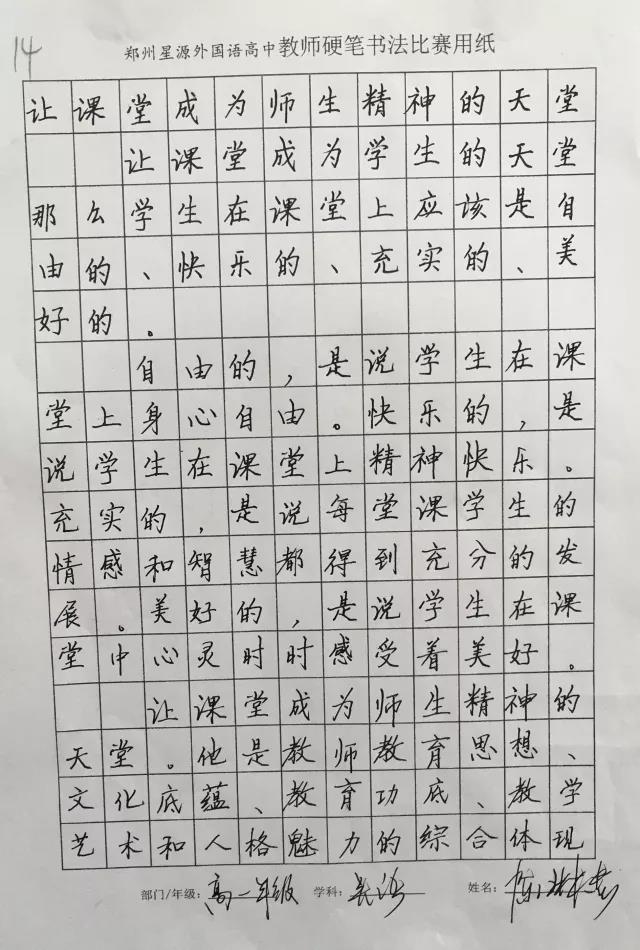 14
郑州星源外国语高中教师硬笔书法比赛用纸
让课堂成为师生精神的天堂
让课堂成为学生的天堂
那么学生在课堂上应该是自
由的、快乐的、充实的、美
好的。
自由的,是说学生在课
堂上身心自由。快乐的,是
说学生在课堂上精神快乐。
充实的,是说每堂课学生的
情感和智慧都得到充分的发
展。美好的,是说学生在课
堂中心灵时时感受着美好。
让课堂成为师生精神的
天堂。他是教师教育思想、
文化底蕴、教育功底、教学
艺术和人格魅力的综合体现
部门/年级:高一年级 学科: 姓名: